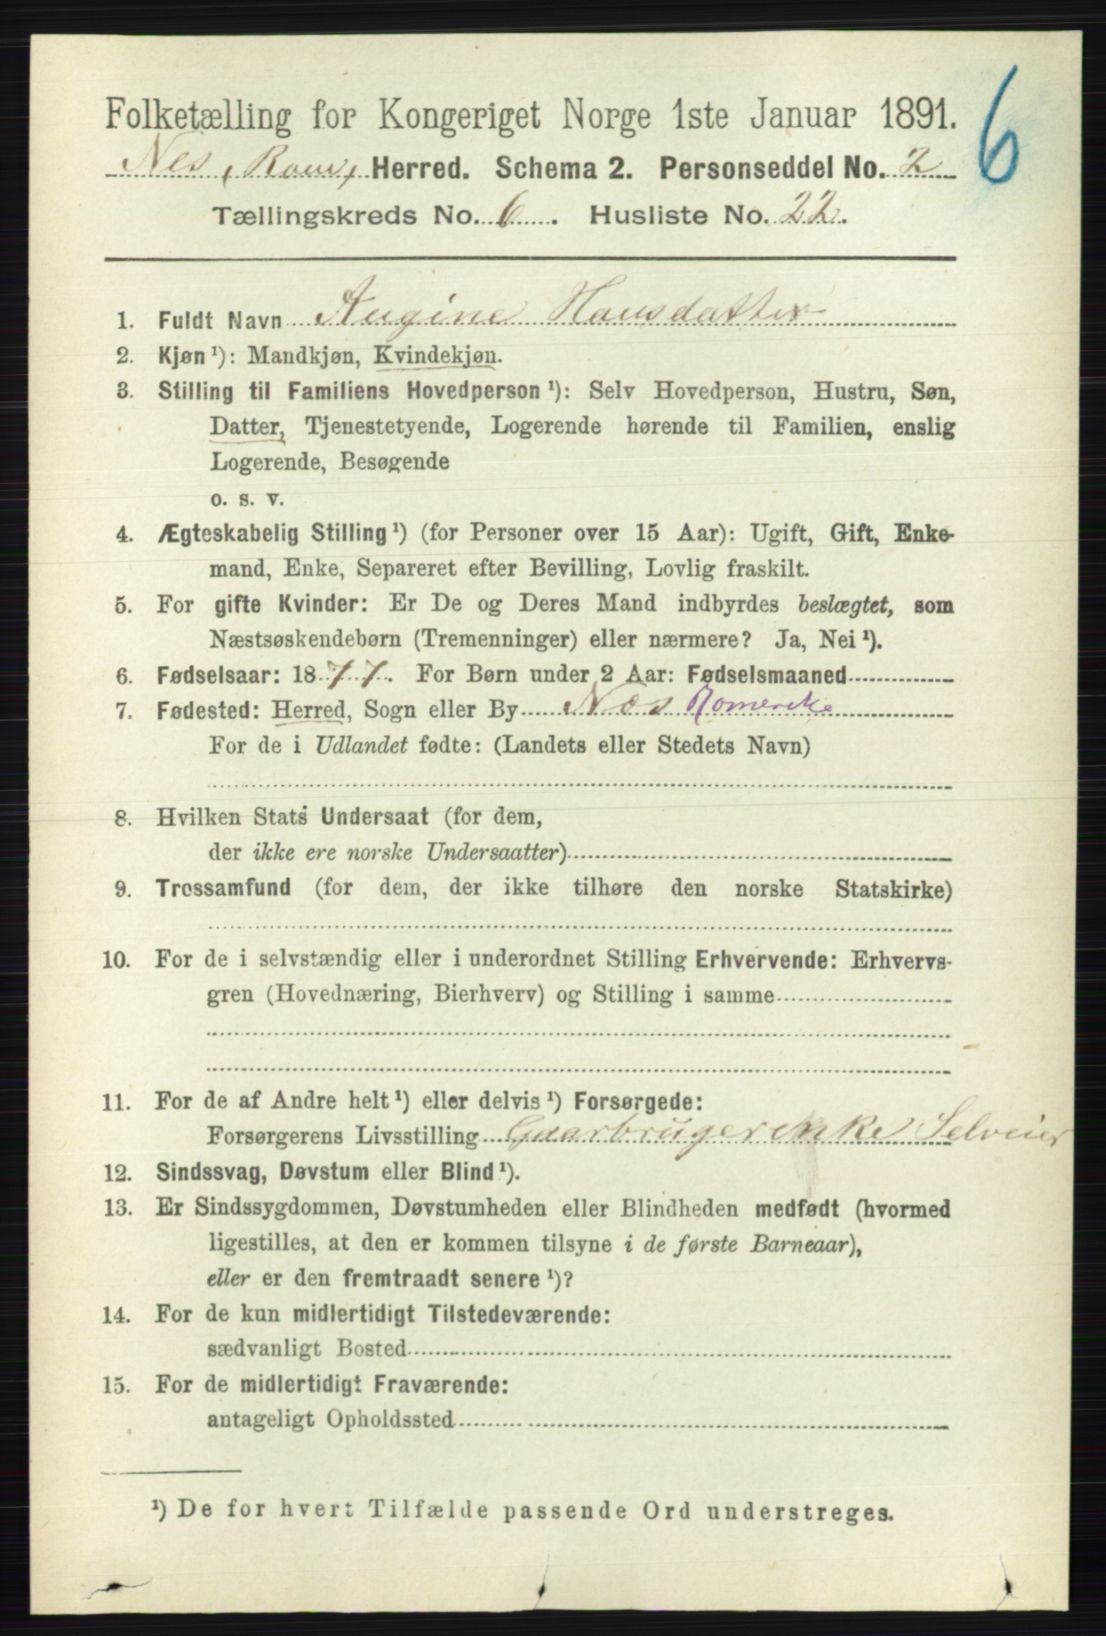 6
Folketælling for Kongeriget Norge 1ste Januar 1891.
Nes, Rom, Herred. Schema 2. Personseddel No. 2
Tællingskreds No. 6. Husliste No. 22.
1. Fuldt Navn Augine Hansdatter
2. Kjøn ¹): Mandkjøn, Kvindekjøn.
3. Stilling til Familiens Hovedperson ¹): Selv Hovedperson, Hustru, Søn,
Datter, Tjenestetyende, Logerende hørende til Familien, enslig
Logerende, Besøgende
o. s. v.
4. Ægteskabelig Stilling ¹) (for Personer over 15 Aar): Ugift, Gift, Enke-
mand, Enke, Separeret efter Bevilling, Lovlig fraskilt.
5. For gifte Kvinder: Er De og Deres Mand indbyrdes beslægtet, som
Næstsøskendebørn (Tremenninger) eller nærmere? Ja, Nei ¹).
6. Fødselsaar: 1877. For Børn under 2 Aar: Fødselsmaaned
7. Fødested: Herred, Sogn eller By Nes Romerike
For de i Udlandet fødte: (Landets eller Stedets Navn)
8. Hvilken Stats Undersaat (for dem,
der ikke ere norske Undersaatter)
9. Trossamfund (for dem, der ikke tilhøre den norske Statskirke)
10. For de i selvstændig eller i underordnet Stilling Erhvervende: Erhvervs-
gren (Hovednæring, Bierhverv) og Stilling i samme
11. For de af Andre helt ¹) eller delvis ¹) Forsørgede:
Forsørgerens Livsstilling Gaarbrugerenke Selveier
12. Sindssvag, Døvstum eller Blind ¹).
13. Er Sindssygdommen, Døvstumheden eller Blindheden medfødt (hvormed
ligestilles, at den er kommen tilsyne i de første Barneaar),
eller er den fremtraadt senere ¹)?
14. For de kun midlertidigt Tilstedeværende:
sædvanligt Bosted
15. For de midlertidigt Fraværende:
antageligt Opholdssted
¹) De for hvert Tilfælde passende Ord understreges.